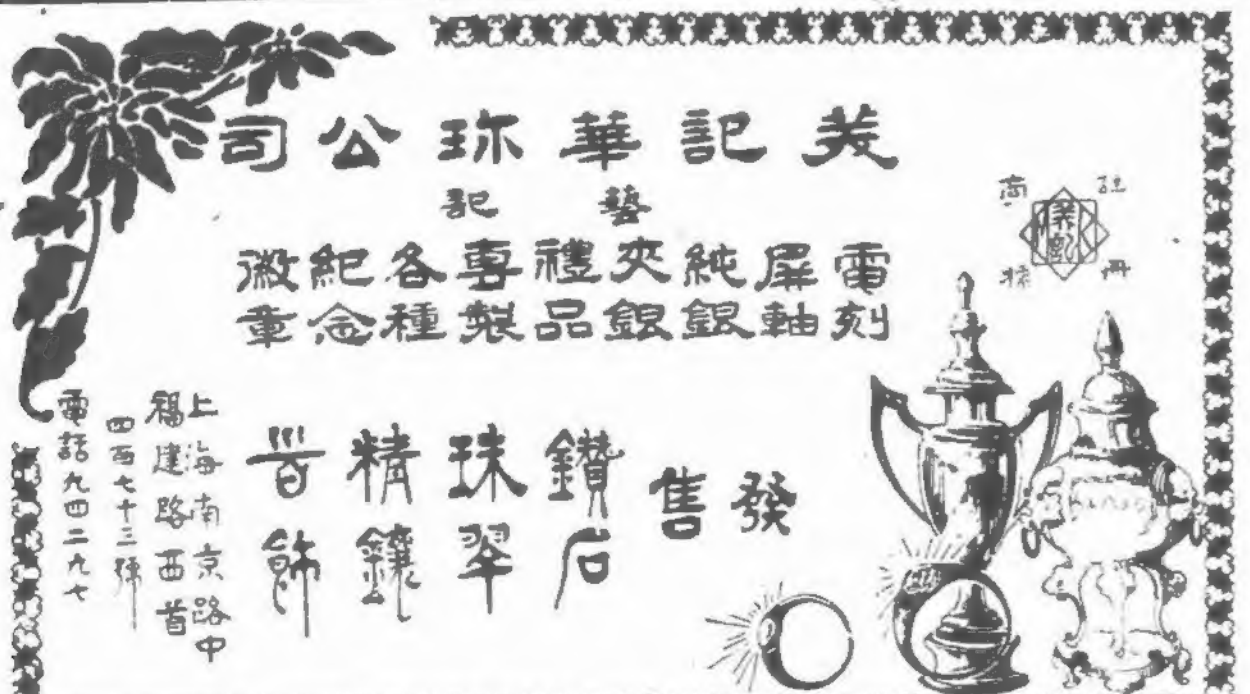 美記華珎公司
藝記
註冊商標
電刻
屏軸
純銀
夾銀
禮品
專製
各種
紀念
徽章
發售
鑽石
珠翠
精鑲
首飾
上海南京路中
福建路西首
四百七十三號
電話九四二九七